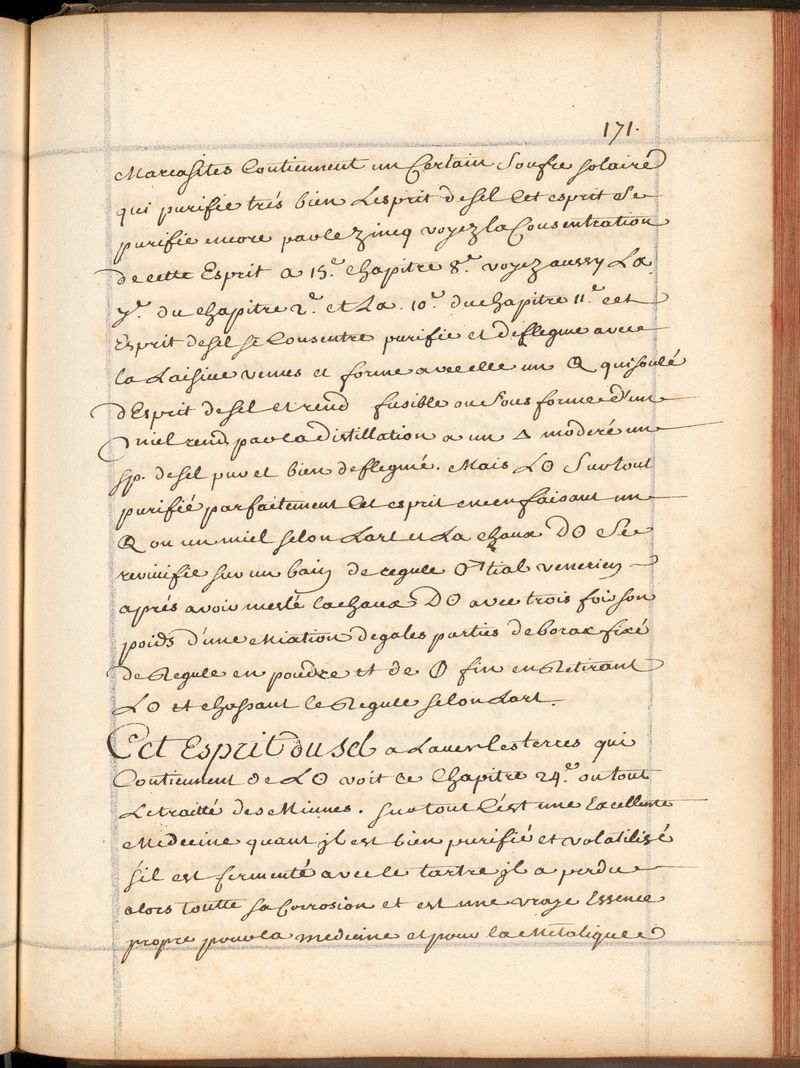 171.
Marcasites Contiennent un Certain Soufre solaire
qui purifie trés bien Lesprit de sel Cet esprit se
purifie encore par le zincq voyez la Consentration
de cette Esprit a 15.e chapitre 8.e voyez aussy La
7.e du chapitre 2.e et La 10.e du chapitre 11.e cet
Esprit de sel se Consentre purifie et deflegme avec
la Laisive venus et forme avec elle un qui soulé
d'Esprit de sel et rend fusible ou sous forme d'un
miel rend par la distillation a un 🜂 moderé un
sp. de sel pur et bien deflegmé. Mais L☉ Surtout
purifié parfaitement Cet esprit en en faisant un
ou un miel selon Lart et La chaux D☉ se
revivifie sur un bain de regule ♂tial venerien
aprés avoir meslé la chaux D☉ avec trois fois son
poids d'une Mixtion degales parties de borax fixé
de Regule en poudre et de fin en Retirant
L☉ et chassant le Regule selon Lart.
Cet Esprit du sel a Laver les terres qui
Contiennent de L☉ voit Ce Chapitre 24.e ou tout
Le traitté des Minnes. sur tout C'est une Excellente
Medecine quant jl est bien purifié et volatilisé
s'il est fermenté avec le tartre jl a perdu
alors toutte sa Corrosion et est une vraye Essence
propre pour la medecine et pour la Metalique